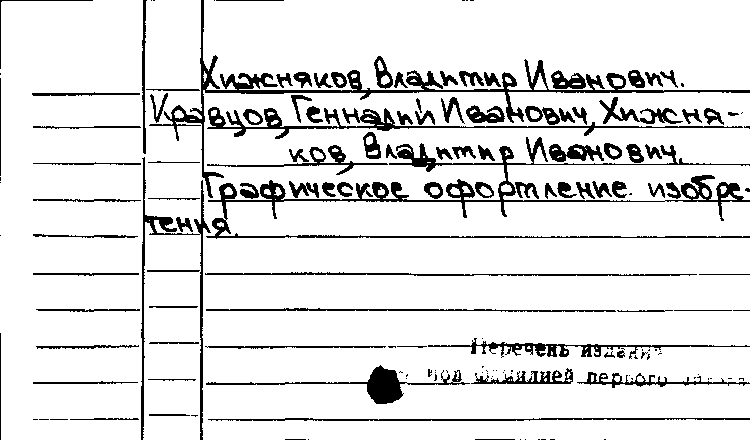 Хижняков, Владимир Иванович.
Кравцов, Геннадий Иванович, Хижня-
ков, Владимир Иванович.
Графическое оформление изобре-
тения.
Перечень изданий
под фамилией первого автора